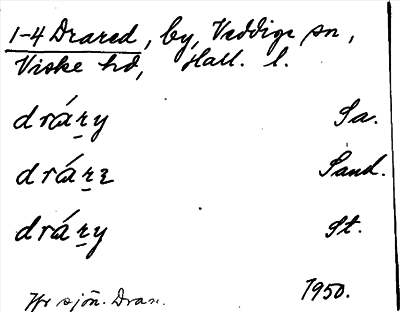 1-4 Drared, by, Veddige sn,
Viske hd, Hall. l.
dráṟy Sa.
dráṟɛ Sand.
dráṟy St.
Jfr sjön. Drax. 1950.